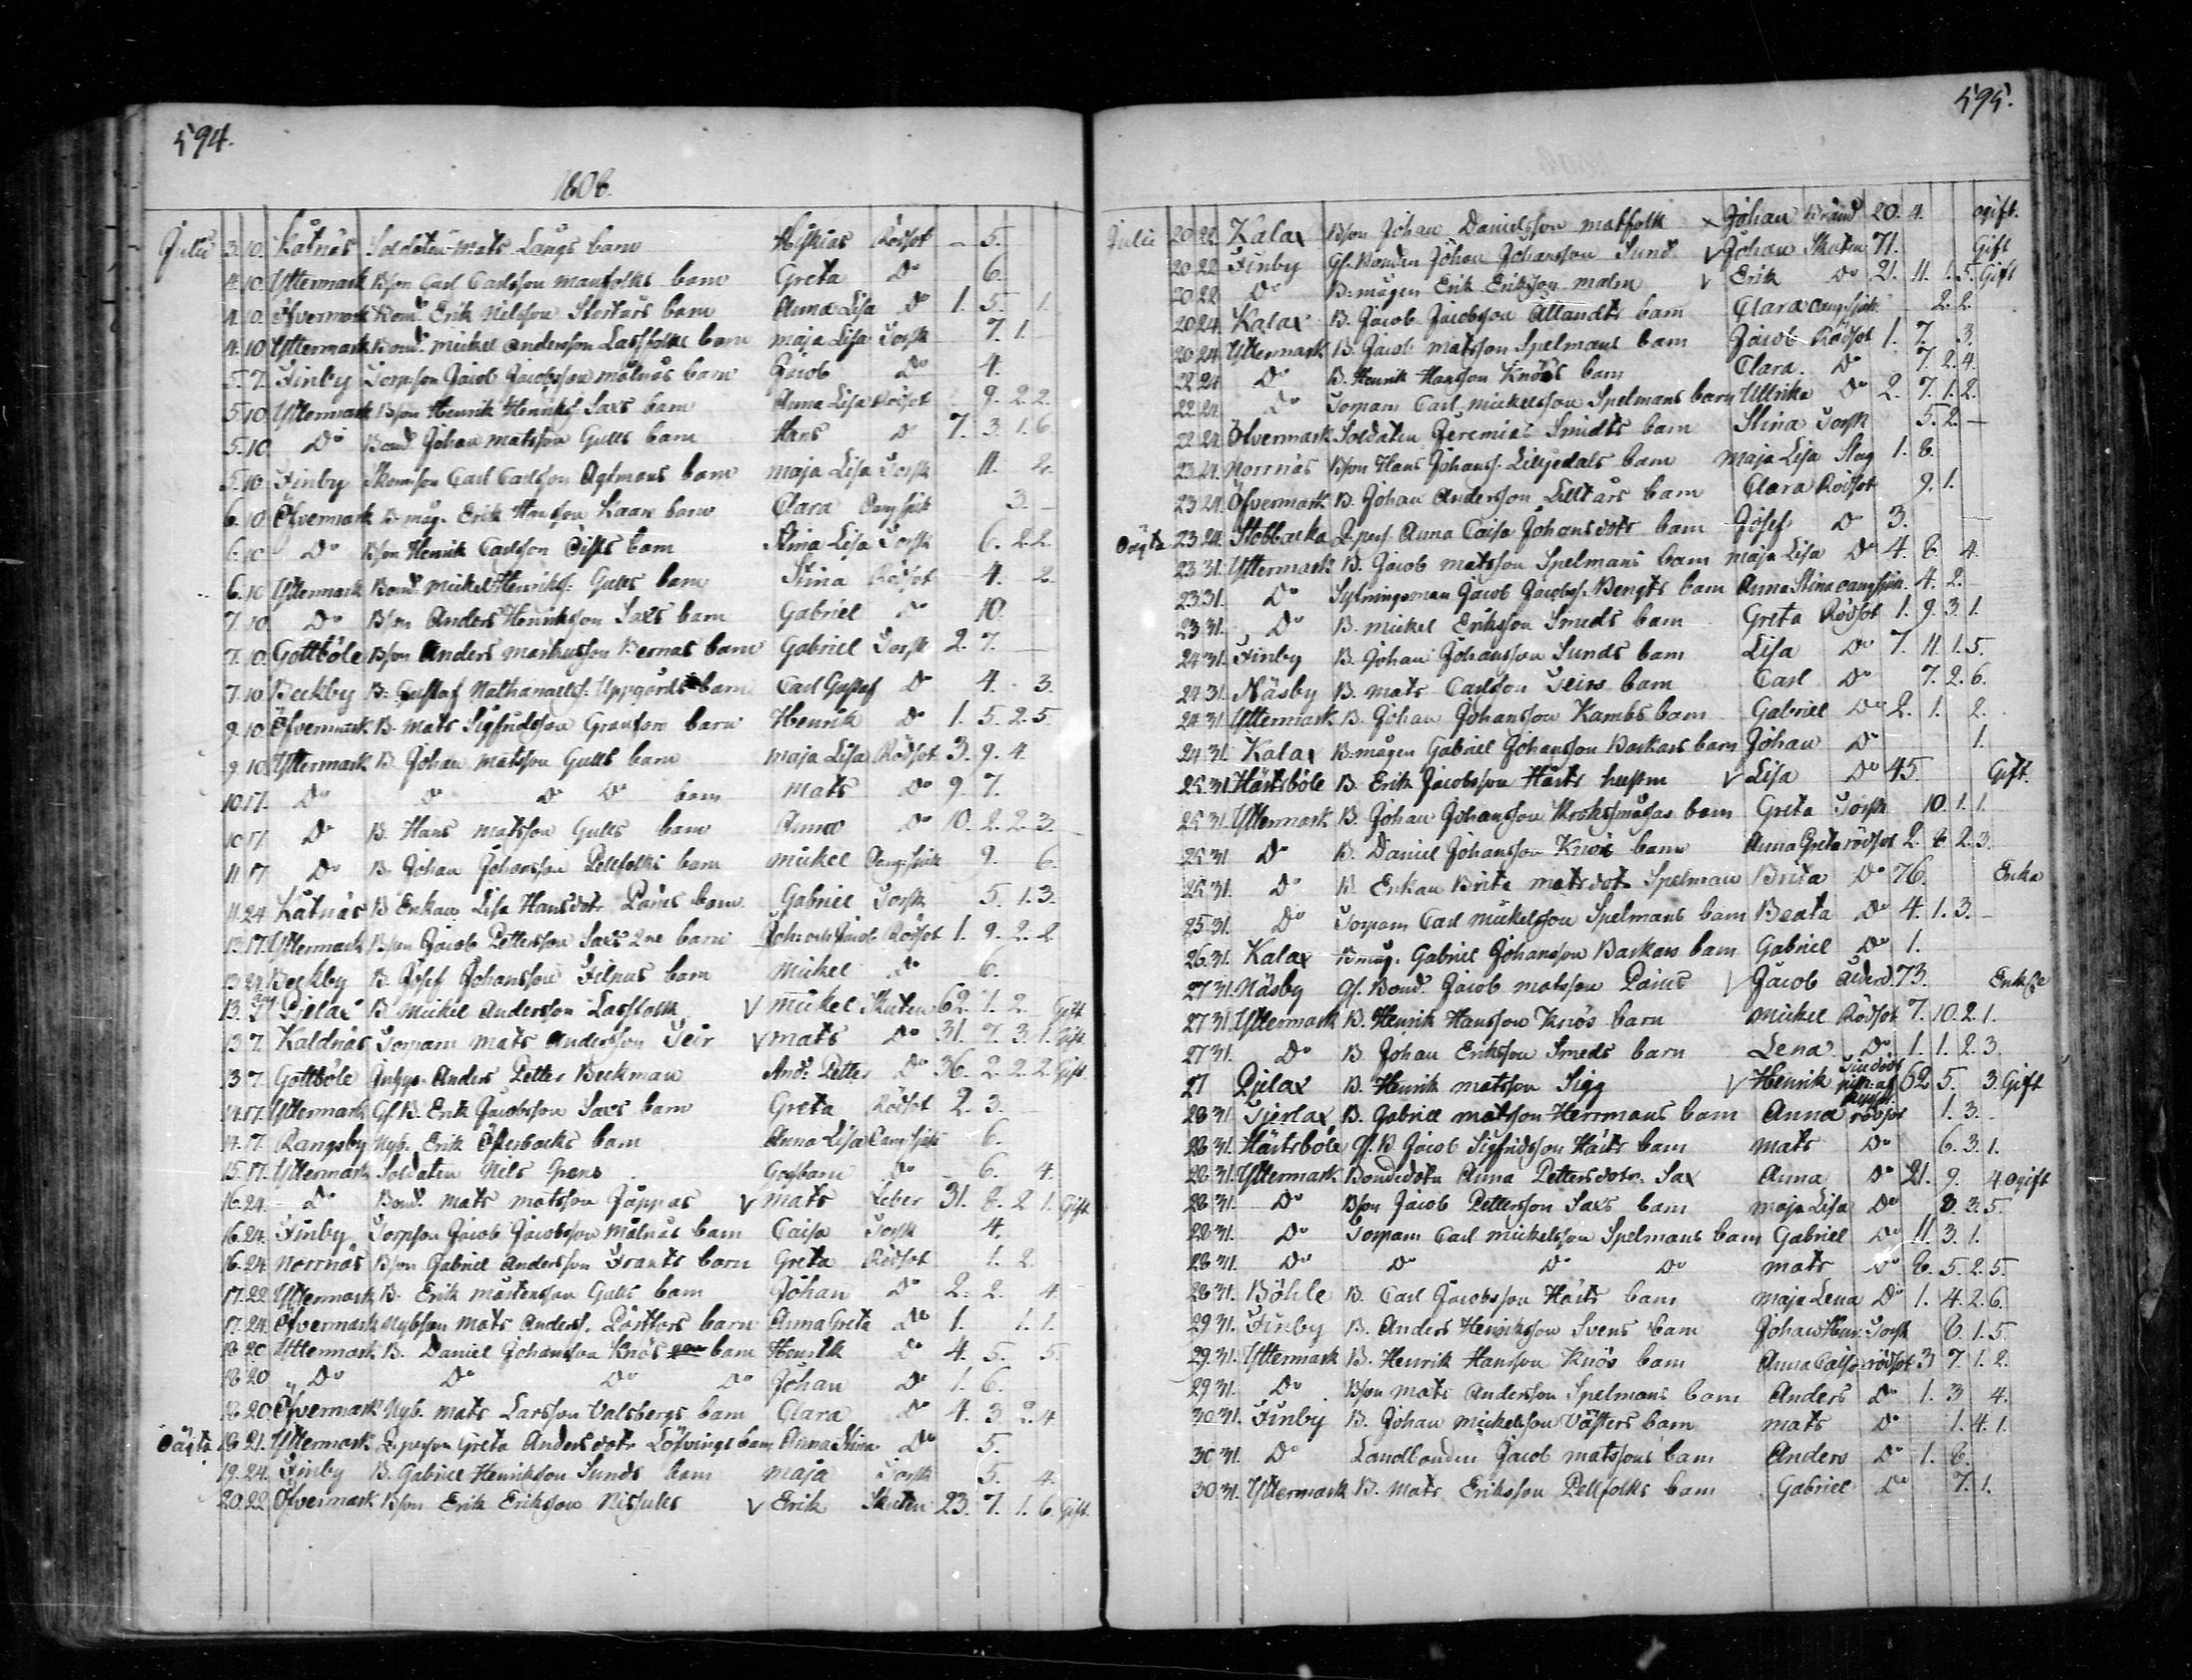 594.
1808.
Julii 3. 10. Kåtnäs Soldaten Mats Långs barn Rödsot – 5.
4. 10. Yttermark Bson Carl Carlsson Manfolks barn Greta Do 6.
4. 10. Öfvermark Bond. Erik Nilsson Storfårs barn Anna Lisa Do 1. 5. 1.
4. 10. Yttermark Bond. Mickel Andersson Lassfolks barn Maja Lisa Torsk 7. 1.
5. 7. Finby Torpson Jacob Jacobsson Målnäs barn Jacob Do 4.
5. 10. Yttermark Bson Henrik Henriks. Saxs barn Anna Lisa Rödsot 9. 2. 2.
5. 10 Do Bond. Johan Matsson Gulls barn Hans D 7. 3. 1. 6.
5. 10. Finby Carl Carlsson Agtmans barn Maja Lisa Torsk 11. 2.
6. 10. Öfvermark B. måg. Erik Hansson barn Clara 3.
6. 10 Do Bson Henrik Carlsson barn Stina Lisa Torsk 6. 2. 2.
6. 10 Yttermark Bond. Mickel Henriks. Gulls barn Stina Rödsot 4. 2.
7. 10 Do Bson Anders Henriksson Saxs barn Gabriel Do 10.
7. 10. Gottböle Bson Anders Markusson Bernas barn Gabriel Torsk 2. 7.
7. 10 Beckby B. Gustaf Nathanaels. Uppgårds barn Carl Gustaf Do 4. 3.
9. 10 Öfvermark B. Mats Sigfridsson Granfors barn Henrik Do 1. 5. 2. 5.
9. 10 Yttermark B. Johan Matsson Gulls barn Maja Lisa Rödsot 3. 9. 4.
10. 17. Do Do Do Do barn Mats Do 9. 7.
10. 17 Do B. Hans Matsson Gulls barn Anna Do 10. 2. 2. 3.
11. 17 Do B. Johan Johansson Pellfolks barn Mickel 9. 6.
11. 24 Kåtnäs B Enkan Lisa Hansdotr Påws barn Gabriel Torsk 5. 1. 3.
13. 17. Yttermark Bson Jacob Pettersson Saxs 2ne barn Joh: och Jacob Rödsot 1. 9. 2. 2
13. 24 Beckby B. Josef Johansson Filpus barn Mickel Do 6.
13. Pjelax B. Mickel Andersson Lassfolk V Mickel Skuten 62. 1. 2. Gift
13 7. Kaldnäs Torpare Mats Andersson Teir V Mats Do 31. 7. 3. 1. Gift
13 7. Gottböle Anders Petter Beckman And: Petter Do 36. 2. 2. 2. Gift
14. 17. Yttermark Gl. B. Erik Jacobsson Saxs barn Greta Rödsot 2. 3.
14. 17. Rangsby Nyb. Erik Österbacks barn Anna Lisa 6.
15. 17. Yttermark Soldaten Nils Grens Gossbarn Do 6. 4.
16. 24. Do Bond. Mats Matsson Jåppas V Mats Feber 31. 8. 2. 1. Gift
16. 24. Finby Torpson Jacob Jacobsson Målnäs barn Caisa Torsk 4.
16. 24 Norrnäs Bson Gabriel Andersson Frants barn Greta Rödsot 1. 2.
17. 22. Yttermark B. Erik Mårtensson Gulls barn Johan Do 2. 2. 4.
17. 24. Öfvermark Nybson Mats Anders. Pärtfors barn Anna Greta Do 1. 1. 1.
18 20 Yttermark B. Daniel Johansson Knös barn Henrik Do 4. 5. 5.
18 20 Do Do Do Do Johan Do 1. 6.
18 20 Öfvermark Nyb. Mats Larsson Valsbergs barn Clara Do 4. 3. 2. 4
Oägta 19. 21. Yttermark Greta Andersdotr Löfvings barn Anna Stina Do 5.
19. 24. Finby B. Gabriel Henriksson Sunds barn Maja Torsk 5. 4.
20. 22. Öfvermark Bson Erik Eriksson Nissules V Erik Skuten 23. 7. 1. 6. Gift
595.
Julii 20 22. Kalax Bson Johan Danielsson Matfolk x Johan Bränd 20. 4. ogift.
20 22 Finby Gl. Bonden Johan Johansson Sund V Johan Skuten 71. Gift
20 22 Do B. mågen Erik Eriksson Malm V Erik Do 21. 11. 1. 5. Gift
20 24. Kalax B. Jacob Jacobsson Ållandts barn Clara 2. 2.
20 24. Yttermark B. Jacob Matsson Spelmans barn Jacob Rödsot 1. 7. 3.
22 24 Do B. Henrik Hansson Knös barn Clara. Do 7. 2. 4.
22 24. Do Torparn Carl Mickelsson Spelmans barn Ullrika Do 2. 7. 1. 2.
22 24. Öfvermark Soldaten Jeremias Smidts barn Stina Torsk 5. 2. –
23. 24. Norrnäs Bson Hans Johans. Liljedals barn Maja Lisa Slag 1. 8.
23 24. Öfvermark B. Johan Andersson Lillårs barn Clara Rödsot 9. 1.
Oägta 23 24. Stobbacka Anna Caisa Johansdotr barn Josef Do 3.
23 31. Yttermark B. Jacob Matsson Spelmans barn Maja Lisa Do 4. 8. 4.
23. 31. Do Sytningsman Jacob Jacobs. Bengts barn Anna Stina 4. 2.
23 31. Do B. Mickel Eriksson Smeds barn Greta Rödsot 1. 9. 3. 1.
24 31. Finby B. Johan Johansson Sunds barn Lisa Do 7. 11. 1. 5.
24 31. Näsby B. Mats Carlsson Teirs barn Carl Do 7. 2. 6.
24 31. Yttermark B. Johan Johansson Kambs barn Gabriel Do 2. 1. 2.
24 31. Kalax B. mågen Gabriel Johansson Backars barn Johan Do 1.
25. 31. Härtsböle B. Erik Jacobsson Härts hustru V Lisa Do 45. Gift.
25 31. Yttermark B. Johan Johansson barn Greta Torsk 10. 1. 1.
25 31 Do B. Daniel Johansson Knös barn Anna Greta rödsot 2. 8. 2. 3.
25 31. Do B. Enkan Brita Matsdotr Spelman Brita Do 76. Enka
25. 31. Do Torparn Carl Mickelsson Spelmans barn Beata Do 4. 1. 3.
26. 31. Kalax Bmåg. Gabriel Johansson Backars barn Gabriel Do 1.
27 31. Näsby Gl. Bond. Jacob Matsson Påws V Jacob Ålderd. 73. Enkl.
27 31. Yttermark B. Henrik Hansson Knös barn Mickel Rödsot 7. 10. 2. 1.
27 31. Do B. Johan Eriksson Smeds barn Lena Do 1. 1. 2. 3.
27 Pjelax B. Henrik Matsson Sigg V Henrik 62 5. 3. Gift
28 31. Tjerlax B. Gabriel Matsson Herrmans barn Anna rödsot 1. 3.
28 31. Härtsböle Gl. B. Jacob Sigfridsson Härts barn Mats Do 6. 3. 1.
28 31. Yttermark Bondedotrn Anna Pettersdotr. Sax Anna Do 21. 9. 4 ogift
28 31. Do Bson Jacob Pettersson Saxs barn Maja Lisa Do 8. 3. 5.
28 31. Do Torparn Carl Mickelsson Spelmans barn Gabriel Do 11. 3. 1.
28 31. Do Do Do Do Mats Do 8. 5. 2. 5.
28 31. Böhle B. Carl Jacobsson Härts barn Maja Lena Do 1. 4. 2. 6.
29 31. Finby B. Anders Henriksson Svens barn Johan Henr. Torsk 8. 1. 5.
29. 31. Yttermark B. Henrik Hansson Knös barn Anna Caisa rödsot 3 7. 1. 2.
29 31. Do Bson Mats Andersson Spelmans barn Anders Do 1. 3 4.
30 31. Finby B. Johan Mickelsson Västers barn Mats Do 1. 4. 1.
30 31. Do Landbonden Jacob Matssons barn Anders Do 1. 8.
30 31. Yttermark B. Mats Eriksson Pellfolks barn Gabriel Do 7. 1.